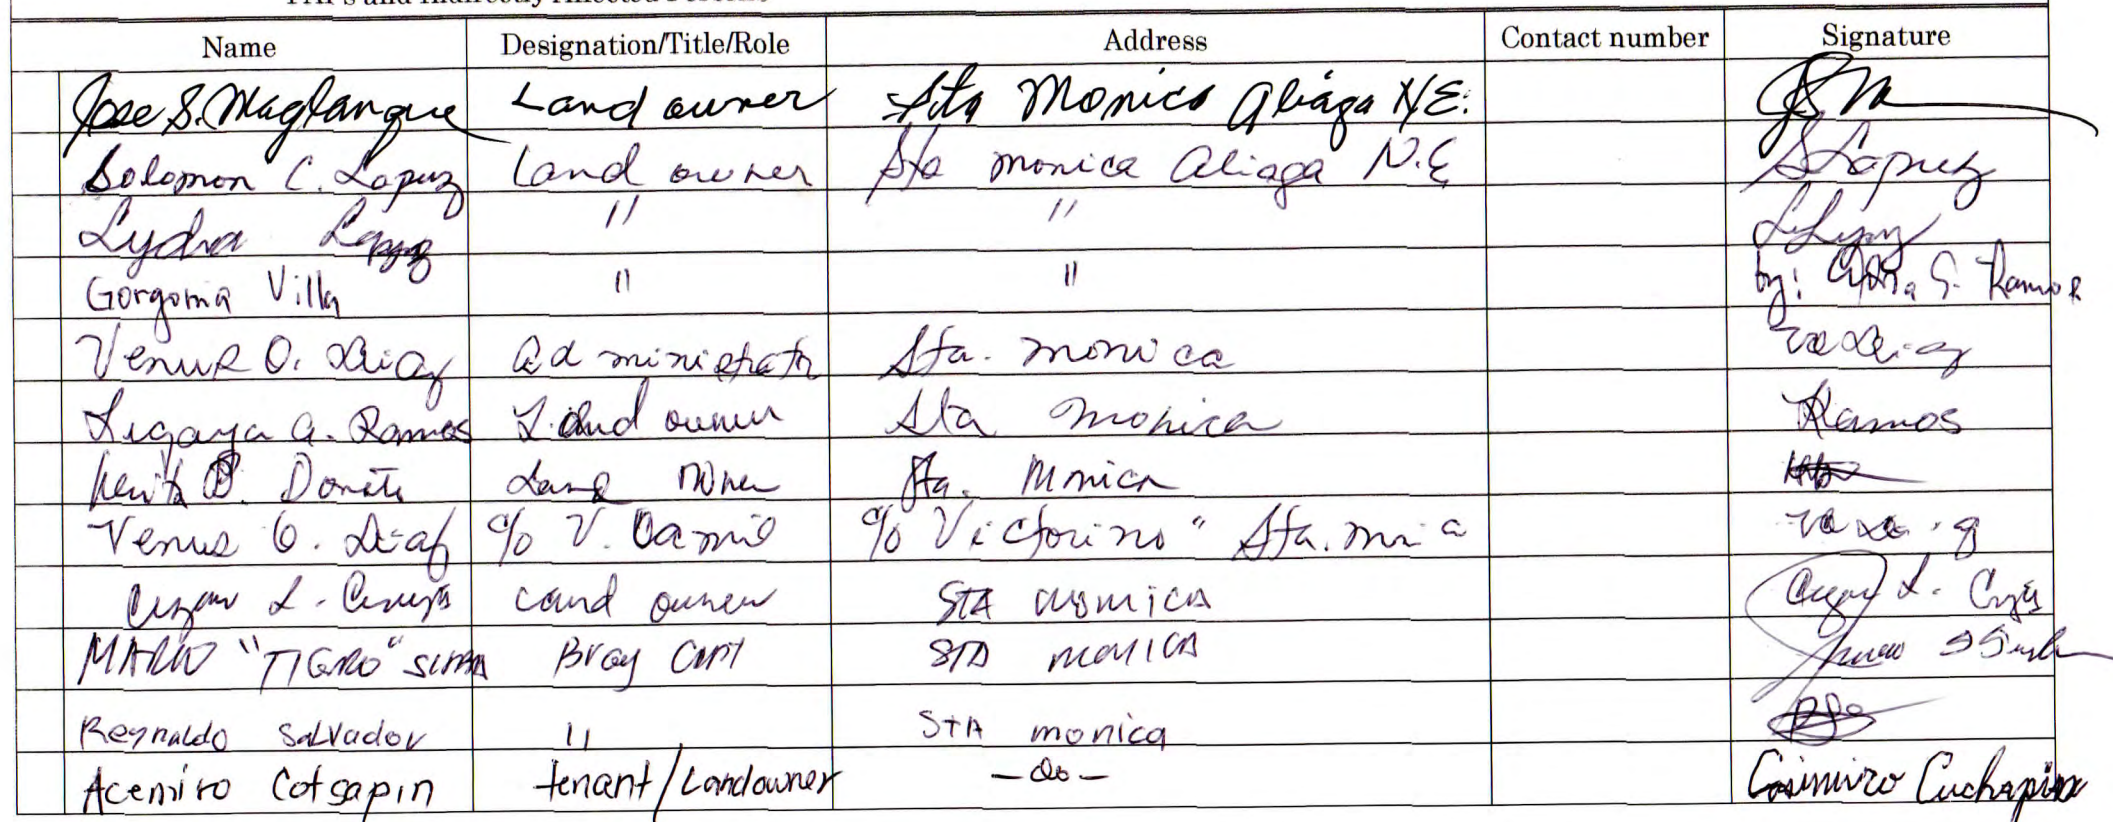 PAPs and Indirectly Affected Persons
Name Designation/Title/Role Address Contact number Signature
Jose S. Maglanque Land owner Sta Monica Aliaga N.E.
Solomon C. Lopez Land owner Sta monica Aliaga N.E SLopez
Lydia Lopez " "
Gorgonia Villa " " by: S. Ramos
Venus O. Diaz Administrator Sta. monica
Ligaya a. Ramos Land owner Sta monica Ramos
B. Donato Land Owner Sta. Monica
Venus O. Diaz c/o V. c/o Victorino" Sta. monica
L. Land owner STA MONICA L.
MARIO "TIGRO" Brgy Capt STA MONICA
Reynaldo Salvador " STA monica
Acemiro Cotsapin tenant/Landowner -do- Casimiro Cuchapin